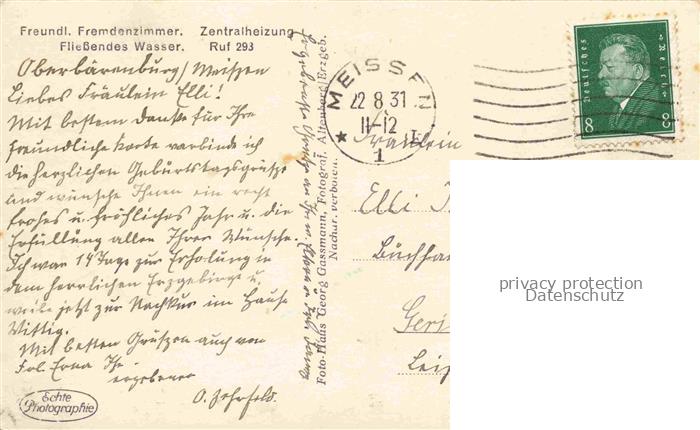 Freundl. Fremdenzimmer. Zentralheizung
Fließendes Wasser. Ruf 293
Oberbärenburg/Meißen
Liebes Fräulein Elli!
Mit bestem Danke für Ihre
freundliche Karte verbinde ich
die herzlichen Geburtstagsgrüße
und wünsche Ihnen ein recht
frohes u. fröhliches Jahr u. die
Erfüllung aller Ihrer Wünsche.
Ich war 14 Tage zur Erholung in
dem herrlichen Erzgebirge u.
weile jetzt zur Nachkur im Hause
Wittig.
Mit besten Grüßen auch von
Frl. Erna Ihr
ergebener
O. Zehrfeld.
Echte
Photographie
Foto-Haus Georg Gassmann, Fotograf, Altenberg/Erzgeb.
Nachdr. verboten.
MEISSEN
22.8.31
11-12
★ 1 E
Deutsches Reich
8 8
Fräulein
Elli
Leip
privacy protection
Datenschutz